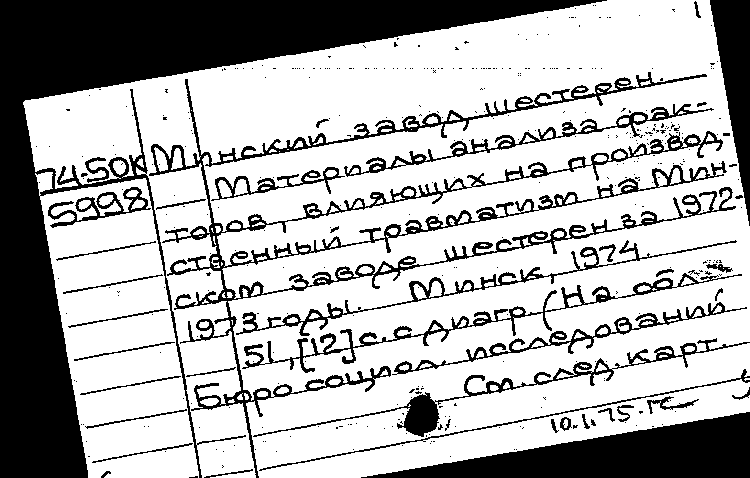 Минский завод шестерен.
74.50К
5998
Материалы анализа фак-
торов, влияющих на производ-
ственный травматизм на Мин-
ском заводе шестерен за 1972-
1973 годы. Минск, 1974.
51, [12] с. с диагр. (На обл.
Бюро социол. исследований
См. след. карт.
10.1.75.